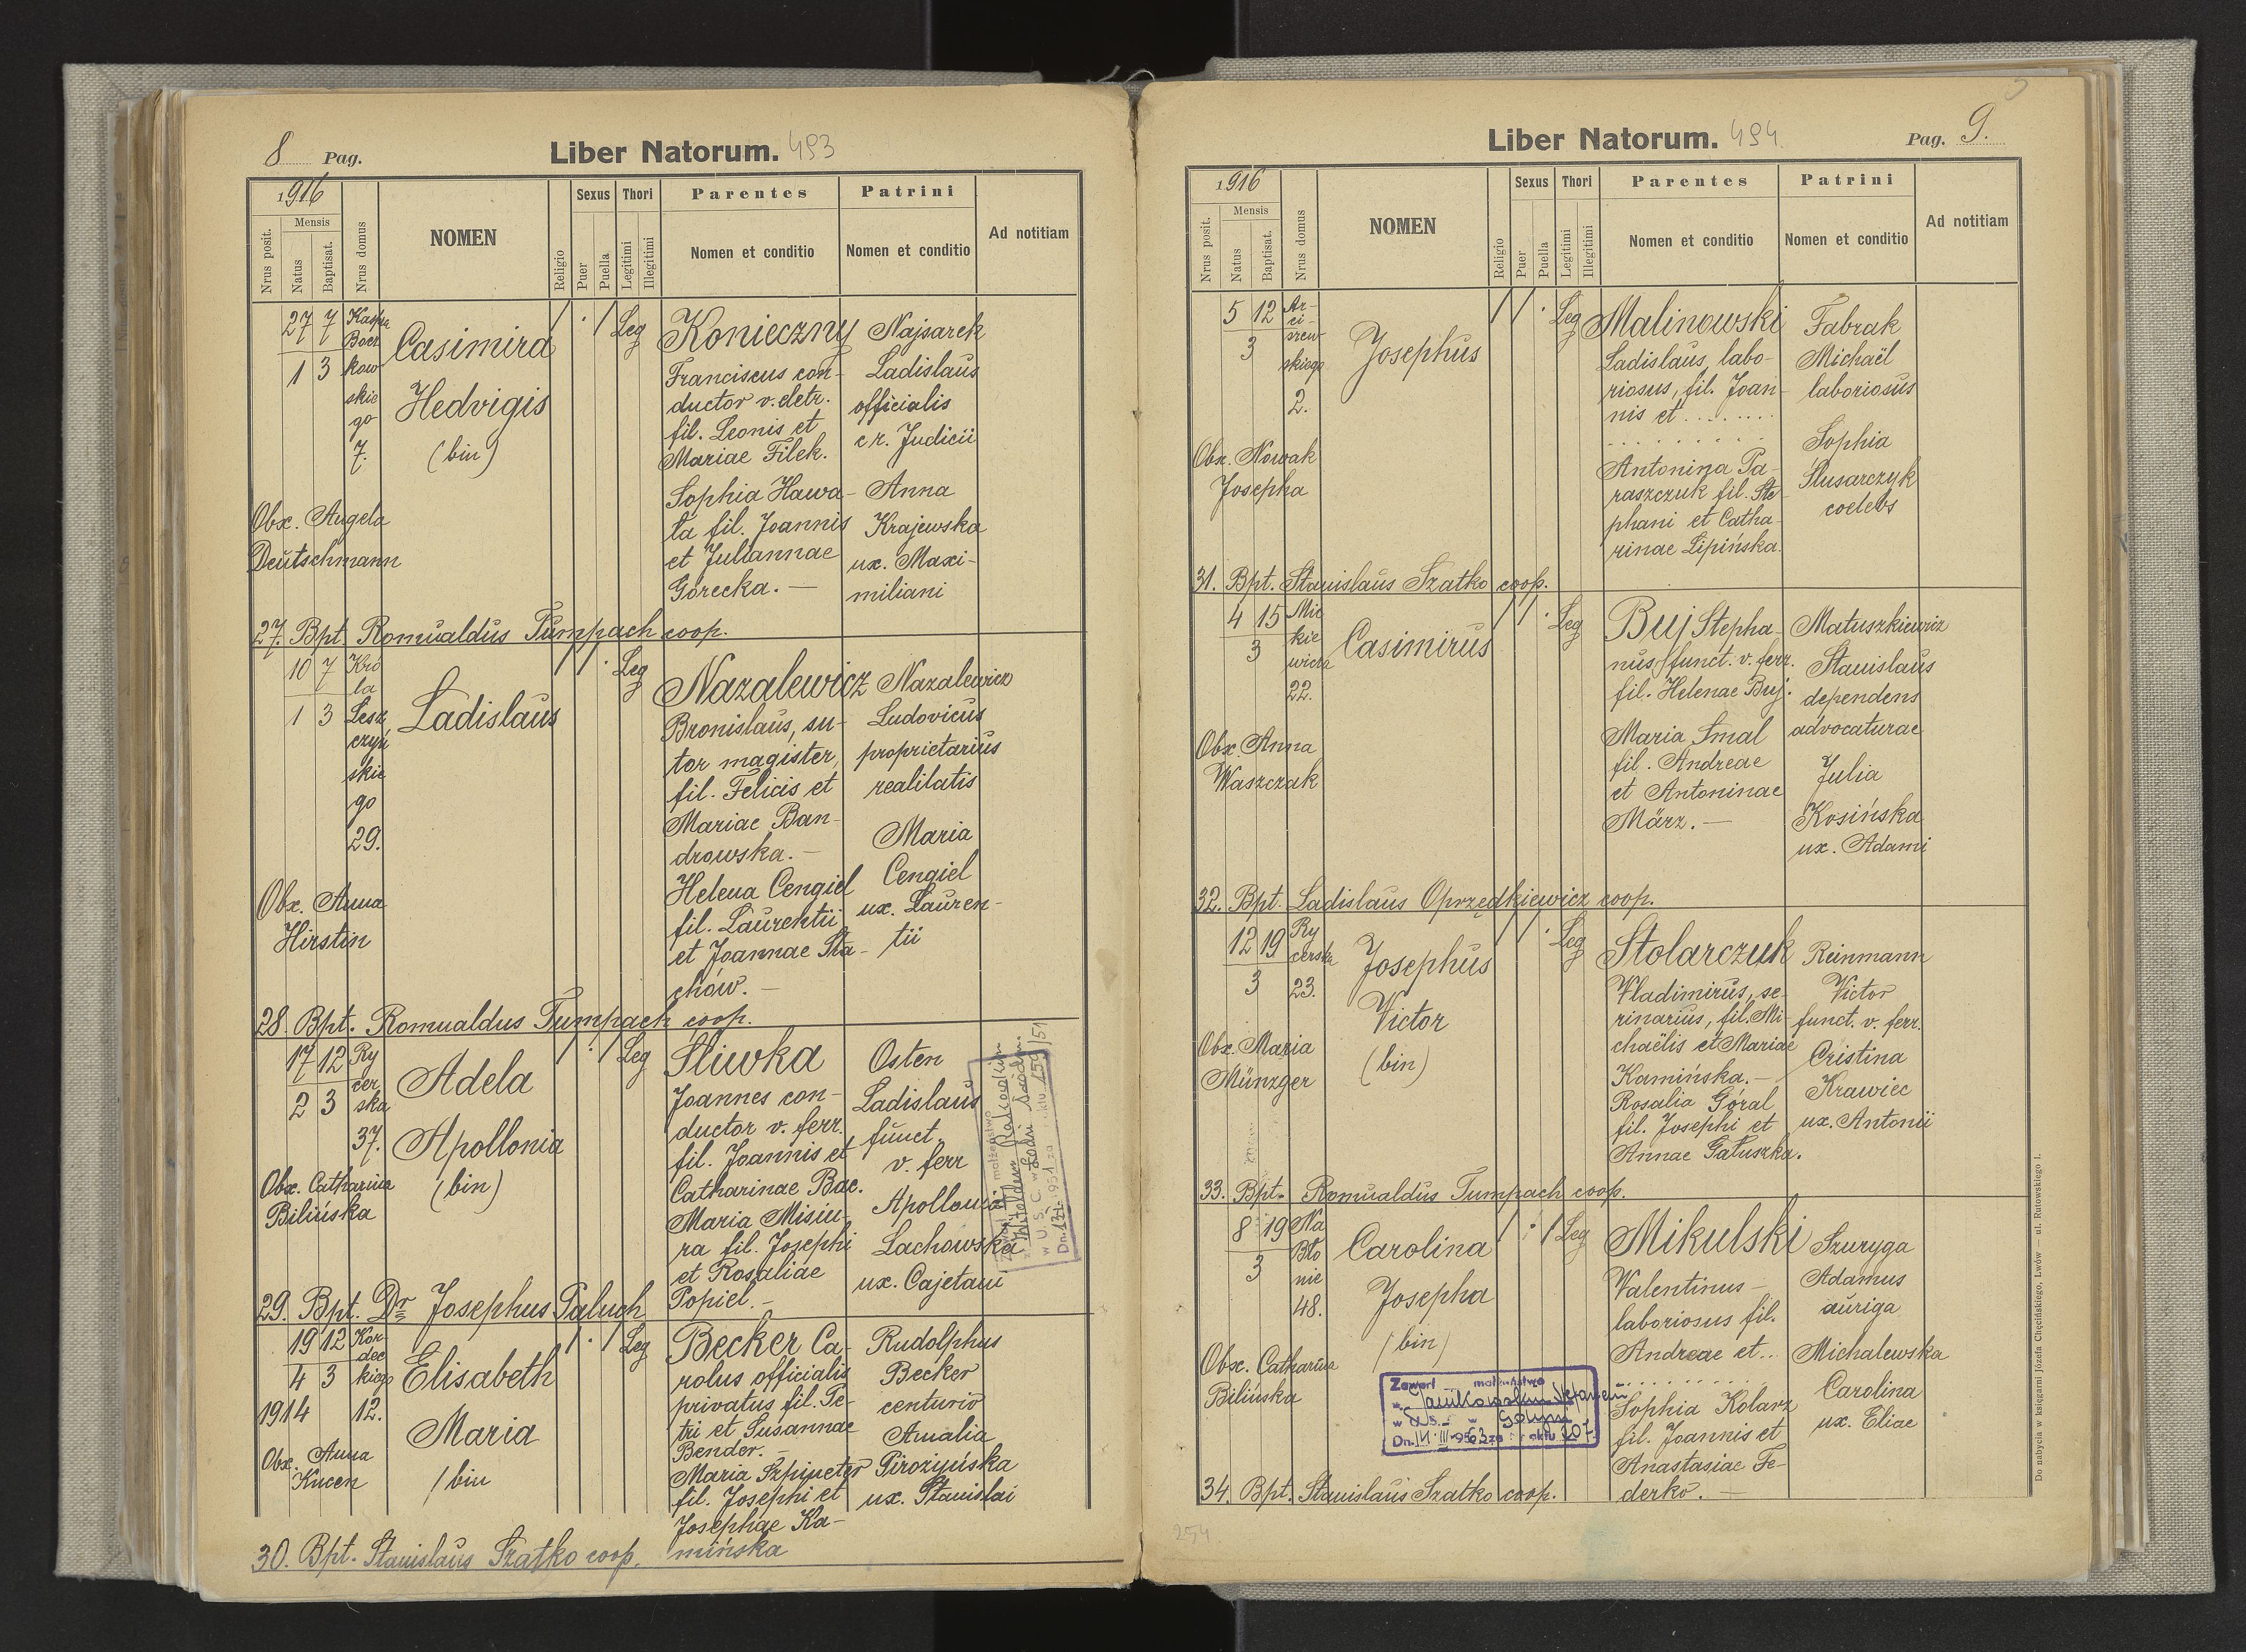 8 Pag.
Liber Natorum. 493
1916
Nrus posit.
Mensis
Natus
Baptisat.
Nrus domus
NOMEN
Religio
Sexus
Puer
Puella
Thori
Legitimi
Illegitimi
Parentes
Nomen et conditio
Patrini
Nomen et conditio
Ad notitiam
27 7
1 3
Kaspra
Bocz
kow
skie
go
7.
Casimira
Hedvigis
(bin)
Leg
Konieczny
Franciscus con-
ductor v. eletr.
fil. Leonis et
Mariae Filek.
Sophia Hawa-
ta fil. Joannis
et Juliannae
Górecka. —
Najsarek
Ladislaus
officialis
c. r. Judicii
Anna
Krajewska
ux. Maxi-
miliani
Obx. Angela
Deutschmann
27. Bpt. Romualdus Tumpach coop.
10 7
1 3
Kró
la
Lesz
czyń
skie
go
29.
Ladislaus
Leg
Nazalewicz
Bronislaus, su-
tor magister,
fil. Felicis et
Mariae Ban-
drowska. —
Helena Cengiel
fil. Laurentii
et Joannae Sta-
chów. —
Nazalewicz
Ludovicus
proprietarius
realitatis
Maria
Cengiel
ux. Lauren-
tii
Obx. Anna
Hirstin
28. Bpt. Romualdus Tumpach coop.
17 12
2 3
Ry
cer
ska
37.
Adela
Apollonia
(bin)
Leg
Śliwka
Joannes con-
ductor v. ferr.
fil. Joannis et
Catharinae Bac.
Maria Misiu-
ra fil. Josephi
et Rosaliae
Popiel. —
Osten
Ladislaus
funct.
v. ferr
Apollonia
Lachowska
ux. Cajetani
małżeństwo
Witoldem
w U. S. C. w Łodzi
Obx. Catharina
Bilińska
29. Bpt. Dr Josephus Paluch
19 12
4 3
1914
Kor
dec
kiego
12.
Elisabeth
Maria
(bin
Leg
Becker Ca-
rolus officialis
privatus fil. Pe-
tri et Susannae
Bender. —
Maria Szpineter
fil. Josephi et
Josephae Ka-
mińska
Rudolphus
Becker
centurio
Amalia
Pirożyńska
ux. Stanislai
Obx. Anna
Kucen
30. Bpt. Stanislaus Szatko coop.
Liber Natorum. 494
Pag. 9.
1916
Nrus posit.
Mensis
Natus
Baptisat.
Nrus domus
NOMEN
Religio
Sexus
Puer
Puella
Thori
Legitimi
Illegitimi
Parentes
Nomen et conditio
Patrini
Nomen et conditio
Ad notitiam
5 12
3
Ar-
ci-
szew
skiego
2.
Josephus
Leg
Malinowski
Ladislaus, labo-
riosus, fil. Joan-
nis et ........
.........
Antonina Pa-
raszczuk fil. Ste-
phani et Catha-
rinae Lipińska.
Fabrak
Michaël
laboriosus
Sophia
Ślusarczyk
coelebs
Obx. Nowak
Josepha
31. Bpt. Stanislaus Szatko coop.
4 15
3
Mic
kie
wicza
22.
Casimirus
Leg
Buj Stepha-
nus funct. v. ferr.
fil. Helenae Buj.
Maria Smal
fil. Andreae
et Antoninae
März. —
Matuszkiewicz
Stanislaus
dependens
advocaturae
Julia
Kosińska
ux. Adami
Obx. Anna
Waszczak
32. Bpt. Ladislaus Oprzędkiewicz coop.
12 19
3
Ry
cerska
23.
Josephus
Victor
(bin)
Leg
Stolarczuk
Vladimirus, se-
rinarius, fil. Mi-
chaëlis et Mariae
Kamińska. —
Rosalia Góral
fil. Josephi et
Annae Gałuszka.
Reinmann
Victor
funct. v. ferr.
Cristina
Krawiec
ux. Antonii
Obx. Maria
Münzger
33. Bpt. Romualdus Tumpach coop.
8 19
3
Na
Bło
nie
48.
Carolina
Josepha
(bin)
Leg
Mikulski
Valentinus —
laboriosus fil.
Andreae et...
.........
Sophia Kolarz
fil. Joannis et
Anastasiae Fe-
derko. —
Szuryga
Adamus
auriga
Michalewska
Carolina
ux. Eliae
Obx. Catharina
Bilińska
Zawarł małżeństwo
34. Bpt. Stanislaus Szatko coop.
254
Do nabycia w księgarni Józefa Chęcińskiego, Lwów — ul. Rutowskiego 1.